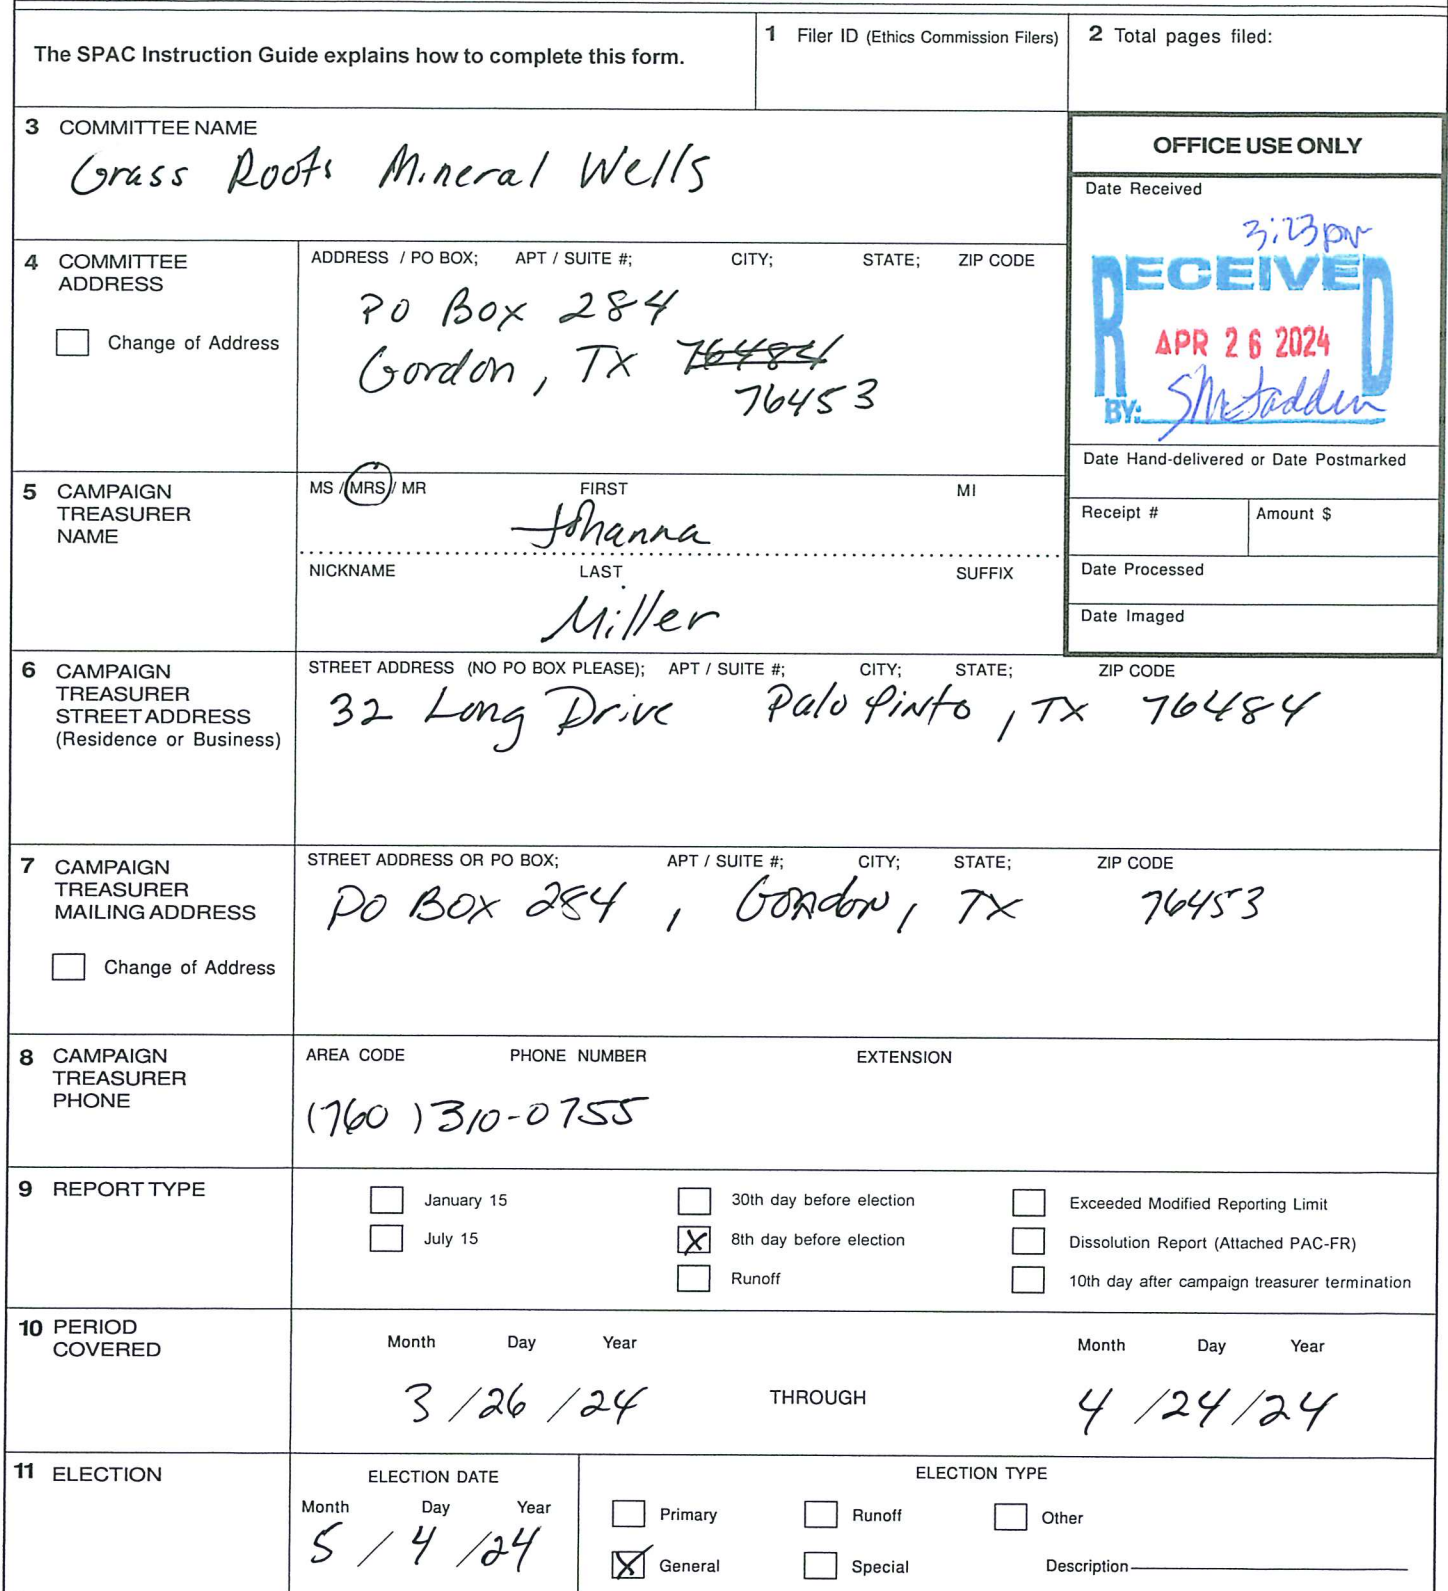 The SPAC Instruction Guide explains how to complete this form.
1 Filer ID (Ethics Commission Filers)
2 Total pages filed:
3 COMMITTEE NAME
Grass Roots Mineral Wells
OFFICE USE ONLY
Date Received
3:23pm
RECEIVED
APR 26 2024
BY: SMcFadden
4 COMMITTEE
ADDRESS
Change of Address
ADDRESS / PO BOX; APT / SUITE #; CITY; STATE; ZIP CODE
PO Box 284
Gordon, TX 76484
76453
Date Hand-delivered or Date Postmarked
Receipt #
Amount $
Date Processed
Date Imaged
5 CAMPAIGN
TREASURER
NAME
MS / MRS / MR FIRST MI
Johanna
NICKNAME LAST SUFFIX
Miller
6 CAMPAIGN
TREASURER
STREET ADDRESS
(Residence or Business)
STREET ADDRESS (NO PO BOX PLEASE); APT / SUITE #; CITY; STATE; ZIP CODE
32 Long Drive Palo Pinto, TX 76484
7 CAMPAIGN
TREASURER
MAILING ADDRESS
Change of Address
STREET ADDRESS OR PO BOX; APT / SUITE #; CITY; STATE; ZIP CODE
PO BOX 284, Gordon, TX 76453
8 CAMPAIGN
TREASURER
PHONE
AREA CODE PHONE NUMBER EXTENSION
(760) 310-0755
9 REPORT TYPE
January 15
July 15
30th day before election
X 8th day before election
Runoff
Exceeded Modified Reporting Limit
Dissolution Report (Attached PAC-FR)
10th day after campaign treasurer termination
10 PERIOD
COVERED
Month Day Year
3 /26 /24
THROUGH
Month Day Year
4 /24/24
11 ELECTION
ELECTION DATE
Month Day Year
5 / 4 /24
ELECTION TYPE
Primary
Runoff
Other
X General
Special
Description